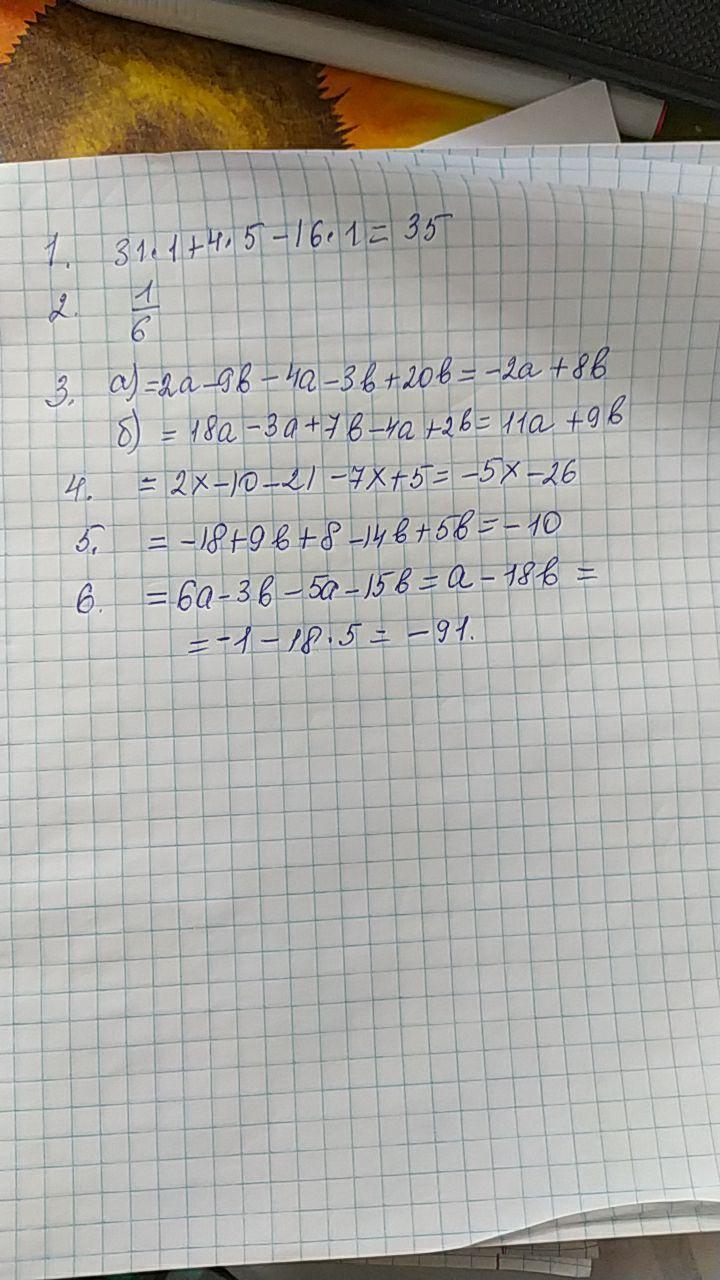 1. 31·1+4·5-16·1=35
2. 1/6
3. а) =2a-9b-4a-3b+20b=-2a+8b
б) =18a-3a+7b-4a+2b=11a+9b
4. =2x-10-21-7x+5=-5x-26
5. =-18+9b+8-14b+5b=-10
6. =6a-3b-5a-15b=a-18b=
=-1-18·5=-91.